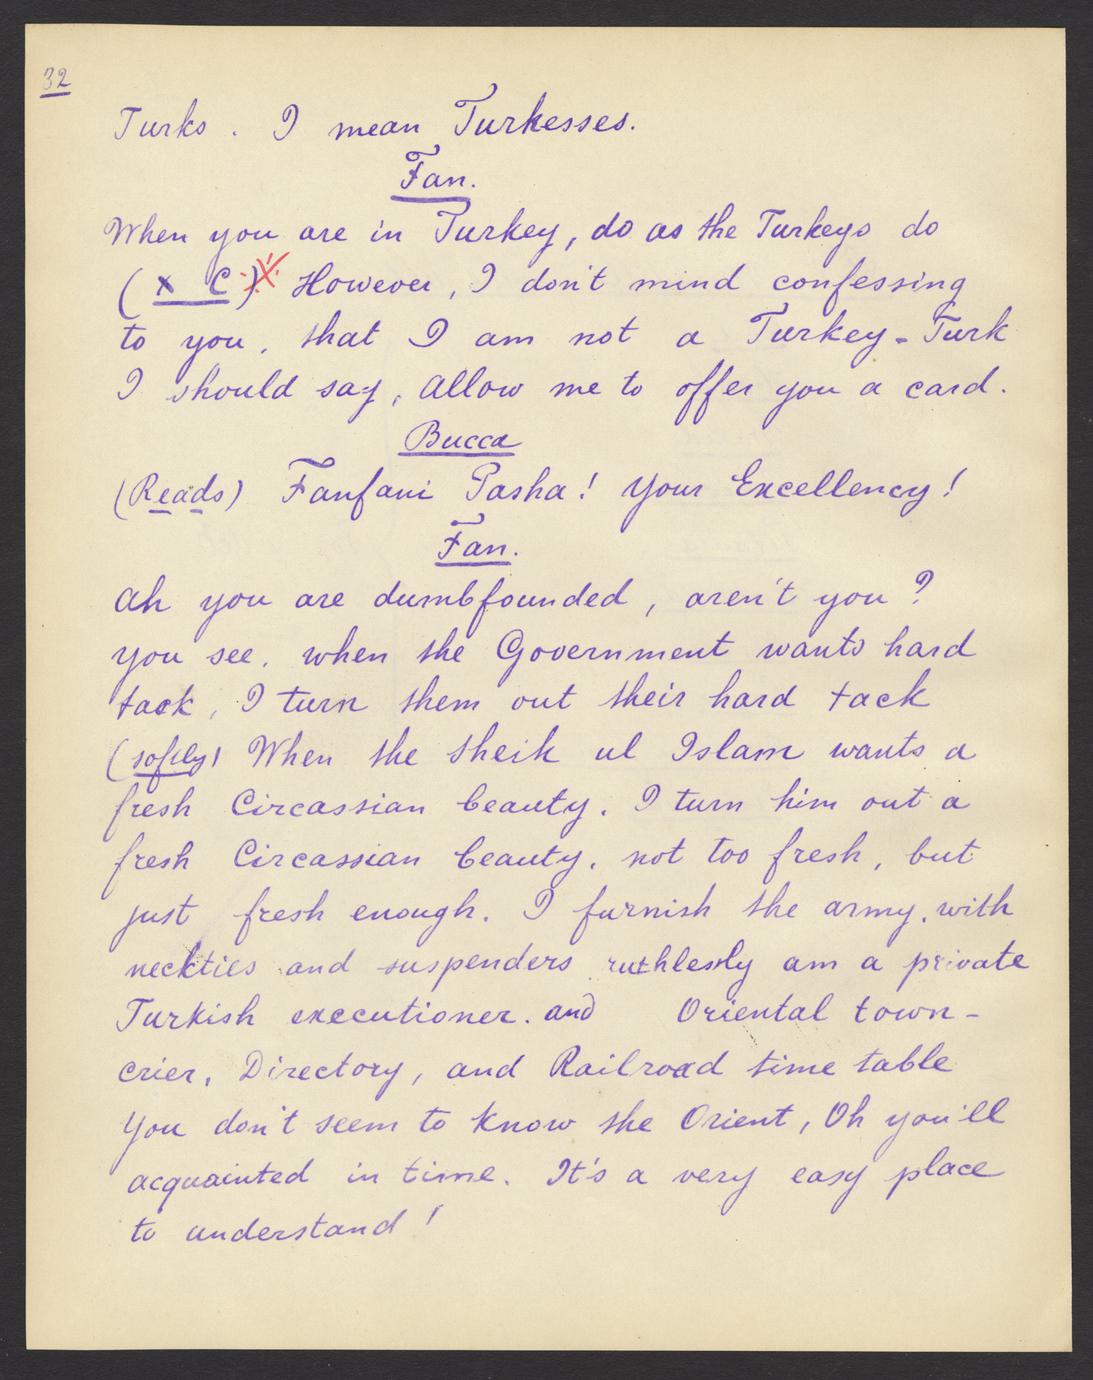 32
Turks. I mean Turkesses.
Fan.
When you are in Turkey, do as the Turkeys do
(x C) However, I don't mind confessing
to you, that I am not a Turkey-Turk
I should say, allow me to offer you a card.
Bucca
(Reads) Fanfani Pasha! Your Excellency!
Fan.
Ah you are dumbfounded, aren't you?
You see, when the Government wants hard
tack, I turn them out their hard tack
(softly) When the Sheik ul Islam wants a
fresh Circassian beauty, I turn him out a
fresh Circassian beauty, not too fresh, but
just fresh enough. I furnish the army, with
neckties and suspenders ruthlessly am a private
Turkish executioner. and Oriental town-
crier, Directory, and Railroad time table
You don't seem to know the Orient, Oh you'll
acquainted in time. It's a very easy place
to understand!